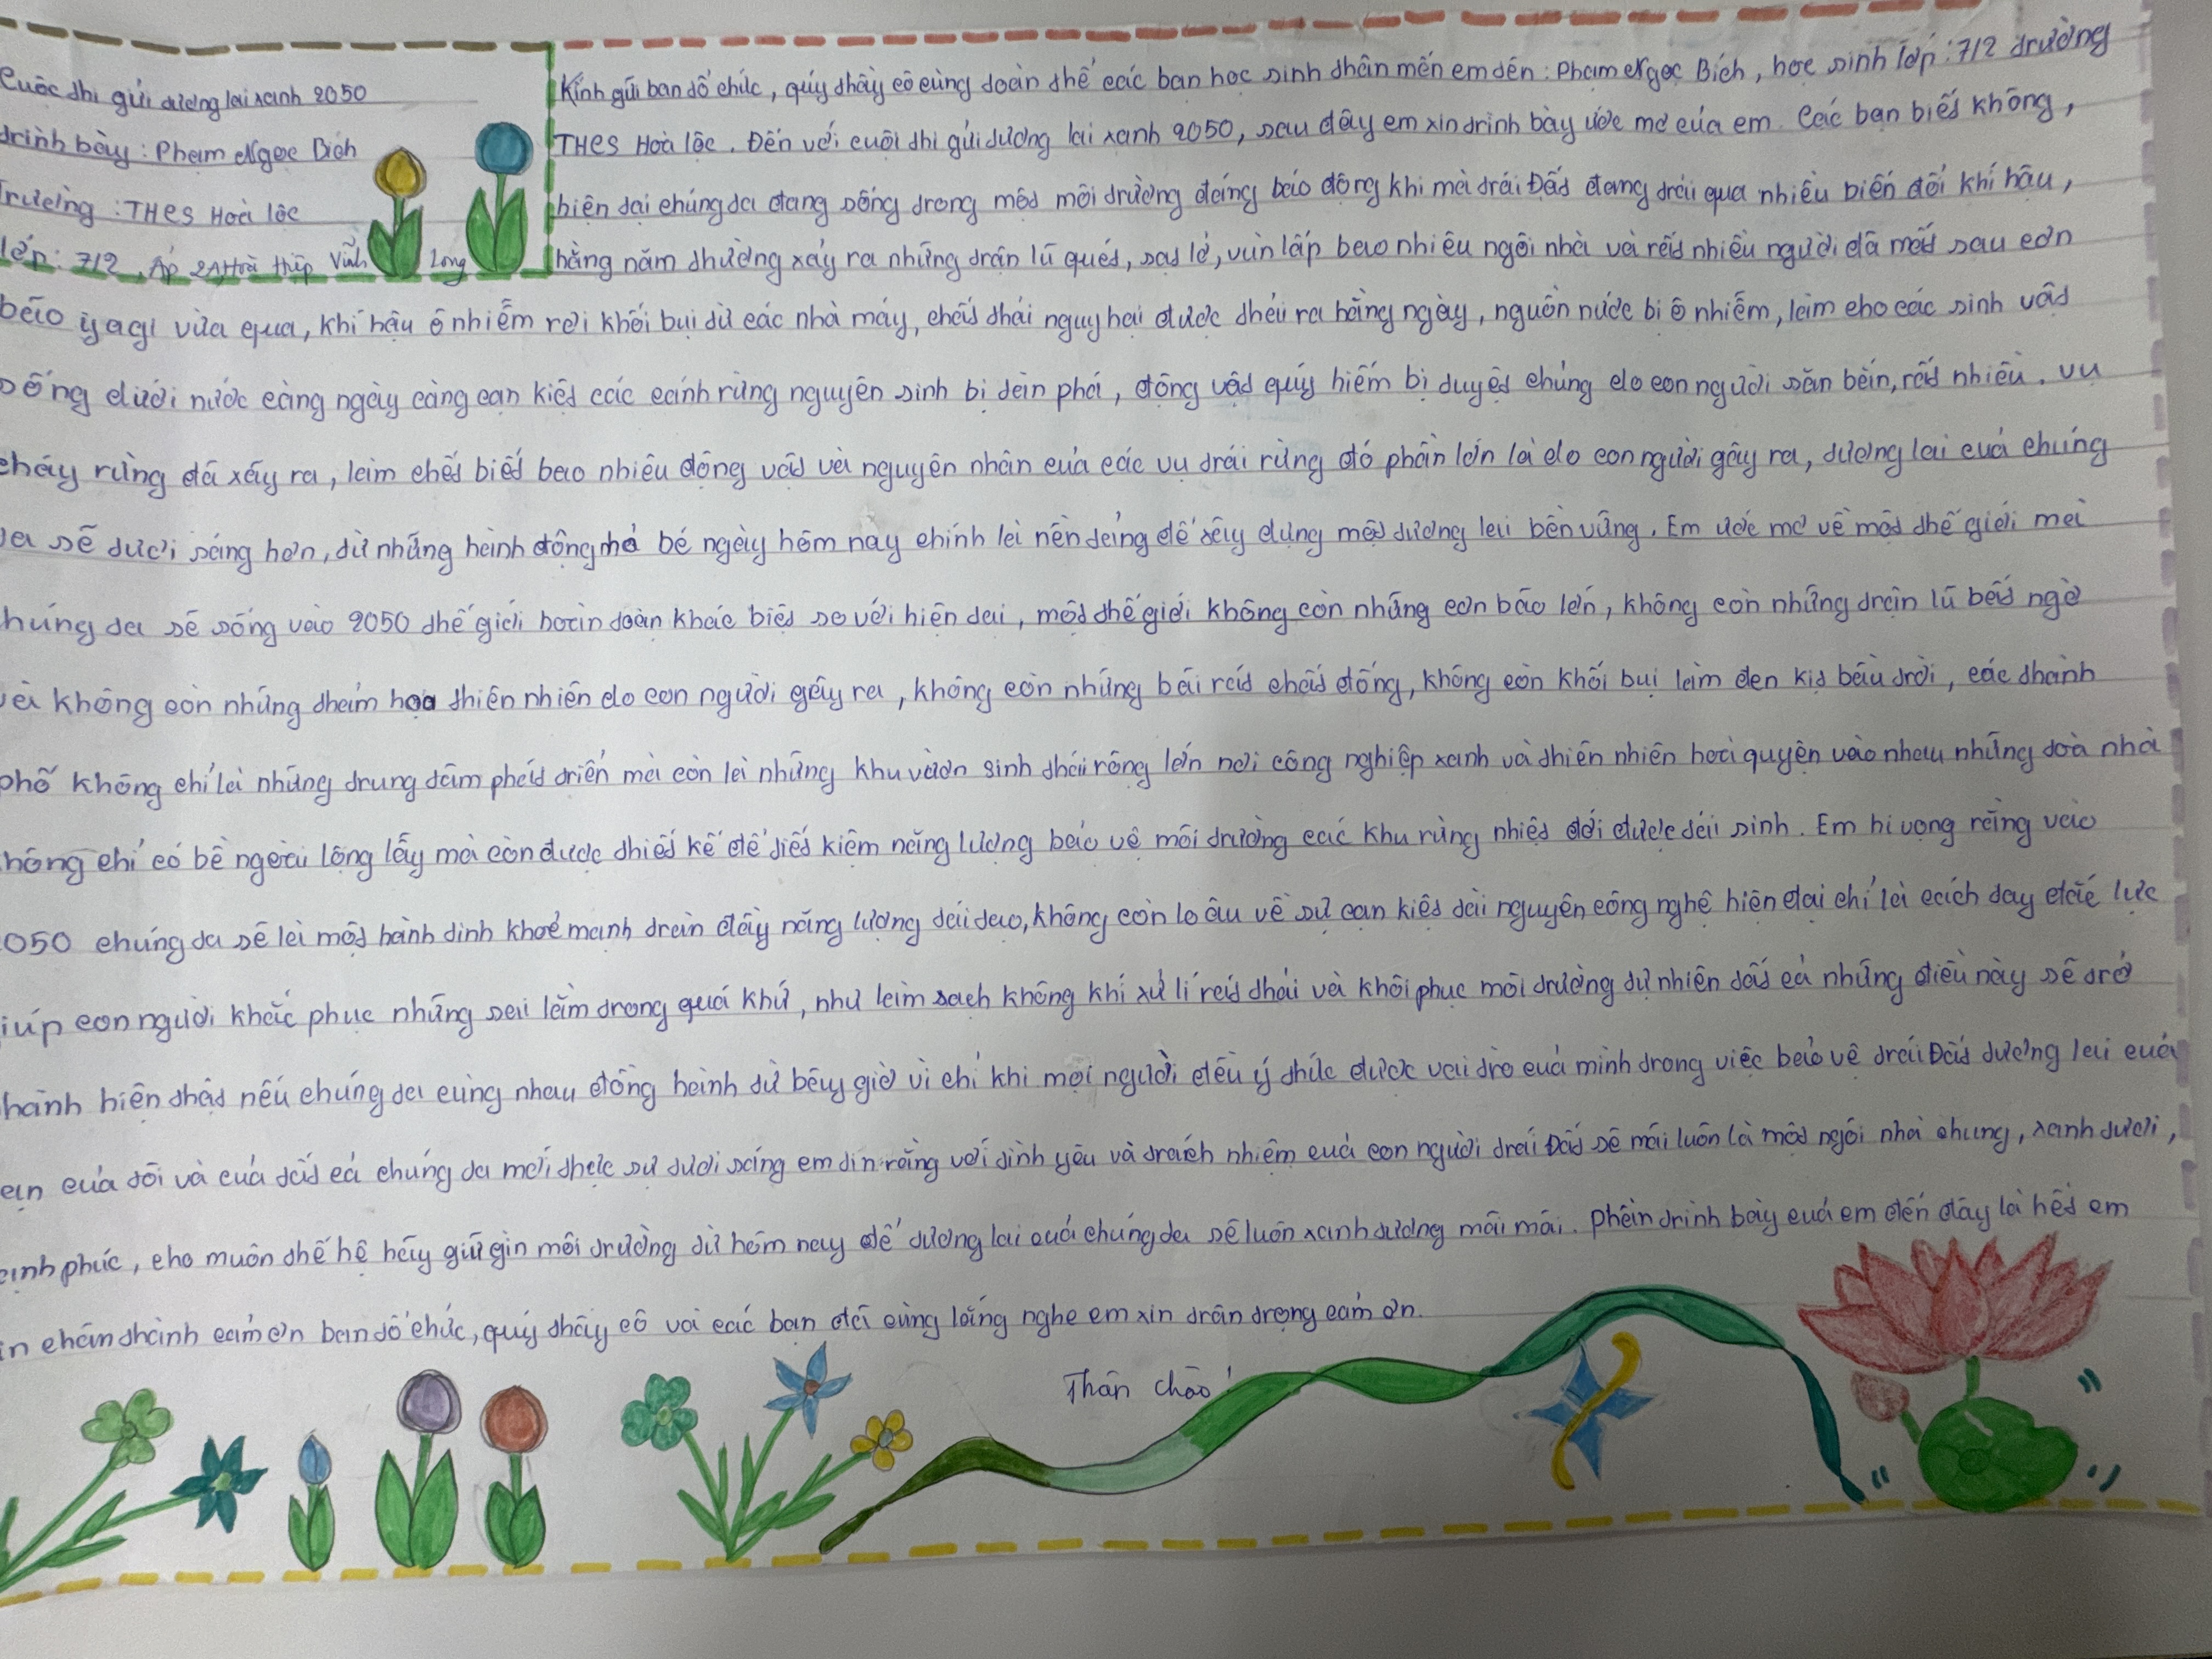 Cuộc thi gửi tương lai xanh 2050
trình bày: Phạm Ngọc Bích
Trường: THCS Hoà lộc
lớp: 7/2, Ấp 2A Hoà thiệp Vĩnh Long
Kính gửi ban tổ chức, quý thầy cô cùng toàn thể các bạn học sinh thân mến em tên: Phạm Ngọc Bích, học sinh lớp: 7/2 trường
THCS Hoà lộc. Đến với cuội thi gửi tương lai xanh 2050, sau đây em xin trình bày ước mơ của em. Các bạn biết không,
hiện tại chúng ta đang sống trong một môi trường đáng báo động khi mà trái Đất đang trải qua nhiều biến đổi khí hậu,
hằng năm thường xảy ra những trận lũ quét, sạt lở, vùn lấp bao nhiêu ngôi nhà và rất nhiều người đã mất sau cơn
bão yagi vừa qua, khí hậu ô nhiễm rồi khói bụi từ các nhà máy, chất thải nguy hại được thải ra hằng ngày, nguồn nước bị ô nhiễm, làm cho các sinh vật
sống dưới nước càng ngày càng cạn kiệt các cánh rừng nguyên sinh bị tàn phá, động vật quý hiếm bị tuyệt chủng do con người săn bắn, rất nhiều. vụ
cháy rừng đã xảy ra, làm chết biết bao nhiêu động vật và nguyên nhân của các vụ trái rừng đó phần lớn là do con người gây ra, tương lai của chúng
ta sẽ tươi sáng hơn, từ những hành động nhỏ bé ngày hôm nay chính là nền tảng để xây dựng một tương lai bền vững. Em ước mơ về một thế giới mà
húng ta sẽ sống vào 2050 thế giới hoàn toàn khác biệt so với hiện tại, một thế giới không còn những cơn bão lớn, không còn những trận lũ bất ngờ
và không còn những thảm hoạ thiên nhiên do con người gây ra, không còn những bãi rát chất đống, không còn khói bụi làm đen kịt bầu trời, các thành
phố không chỉ là những trung tâm phát triển mà còn là những khu vườn sinh thái rộng lớn nơi công nghiệp xanh và thiên nhiên hoà quyện vào nhau những toà nhà
hông chỉ có bề ngoài lộng lẫy mà còn được thiết kế để tiết kiệm năng lượng bảo vệ môi trường các khu rừng nhiệt đới được tái sinh. Em hi vọng rằng vào
050 chúng ta sẽ là một hành tinh khoẻ mạnh tràn đầy năng lượng tái tạo, không còn lo âu về sự cạn kiệt tài nguyên công nghệ hiện đại chỉ là cách tay đắc lực
iúp con người khắc phục những sai lầm trong quá khứ, như làm sạch không khí xử lí rát thải và khôi phục môi trường tự nhiên tất cả những điều này sẽ trở
hành hiện thật nếu chúng ta cùng nhau đồng hành từ bây giờ vì chỉ khi mọi người đều ý thức được vai trò của mình trong việc bảo vệ trái Đất tương lai của
của tôi và của tất cả chúng ta mới thực sự tươi sáng em tin rằng với tình yêu và trách nhiệm của con người trái Đất sẽ mãi luôn là một ngôi nhà chung, xanh tươi,
ạnh phúc, cho muôn thế hệ hãy giữ gìn môi trường từ hôm nay để tương lai của chúng ta sẽ luôn xanh tương mãi mãi. Phần trình bày của em đến đây là hết em
in chân thành cảm ơn ban tổ chức, quý thầy cô và các bạn đã cùng lắng nghe em xin trân trọng cảm ơn.
Thân chào!